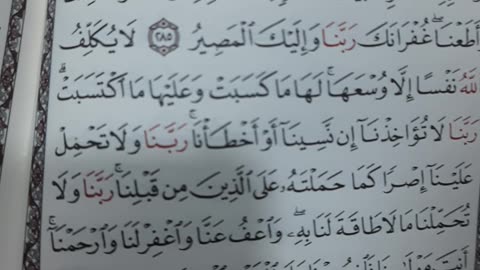 أَطَعْنَاۖ غُفْرَانَكَ رَبَّنَا وَإِلَيْكَ ٱلْمَصِيرُ ٢٨٥ لَا يُكَلِّفُ
ٱللَّهُ نَفْسًا إِلَّا وُسْعَهَاۚ لَهَا مَا كَسَبَتْ وَعَلَيْهَا مَا ٱكْتَسَبَتْۗ
رَبَّنَا لَا تُؤَاخِذْنَآ إِن نَّسِينَآ أَوْ أَخْطَأْنَاۚ رَبَّنَا وَلَا تَحْمِلْ
عَلَيْنَآ إِصْرًا كَمَا حَمَلْتَهُۥ عَلَى ٱلَّذِينَ مِن قَبْلِنَاۚ رَبَّنَا وَلَا
تُحَمِّلْنَا مَا لَا طَاقَةَ لَنَا بِهِۦۖ وَٱعْفُ عَنَّا وَٱغْفِرْ لَنَا وَٱرْحَمْنَآۚ